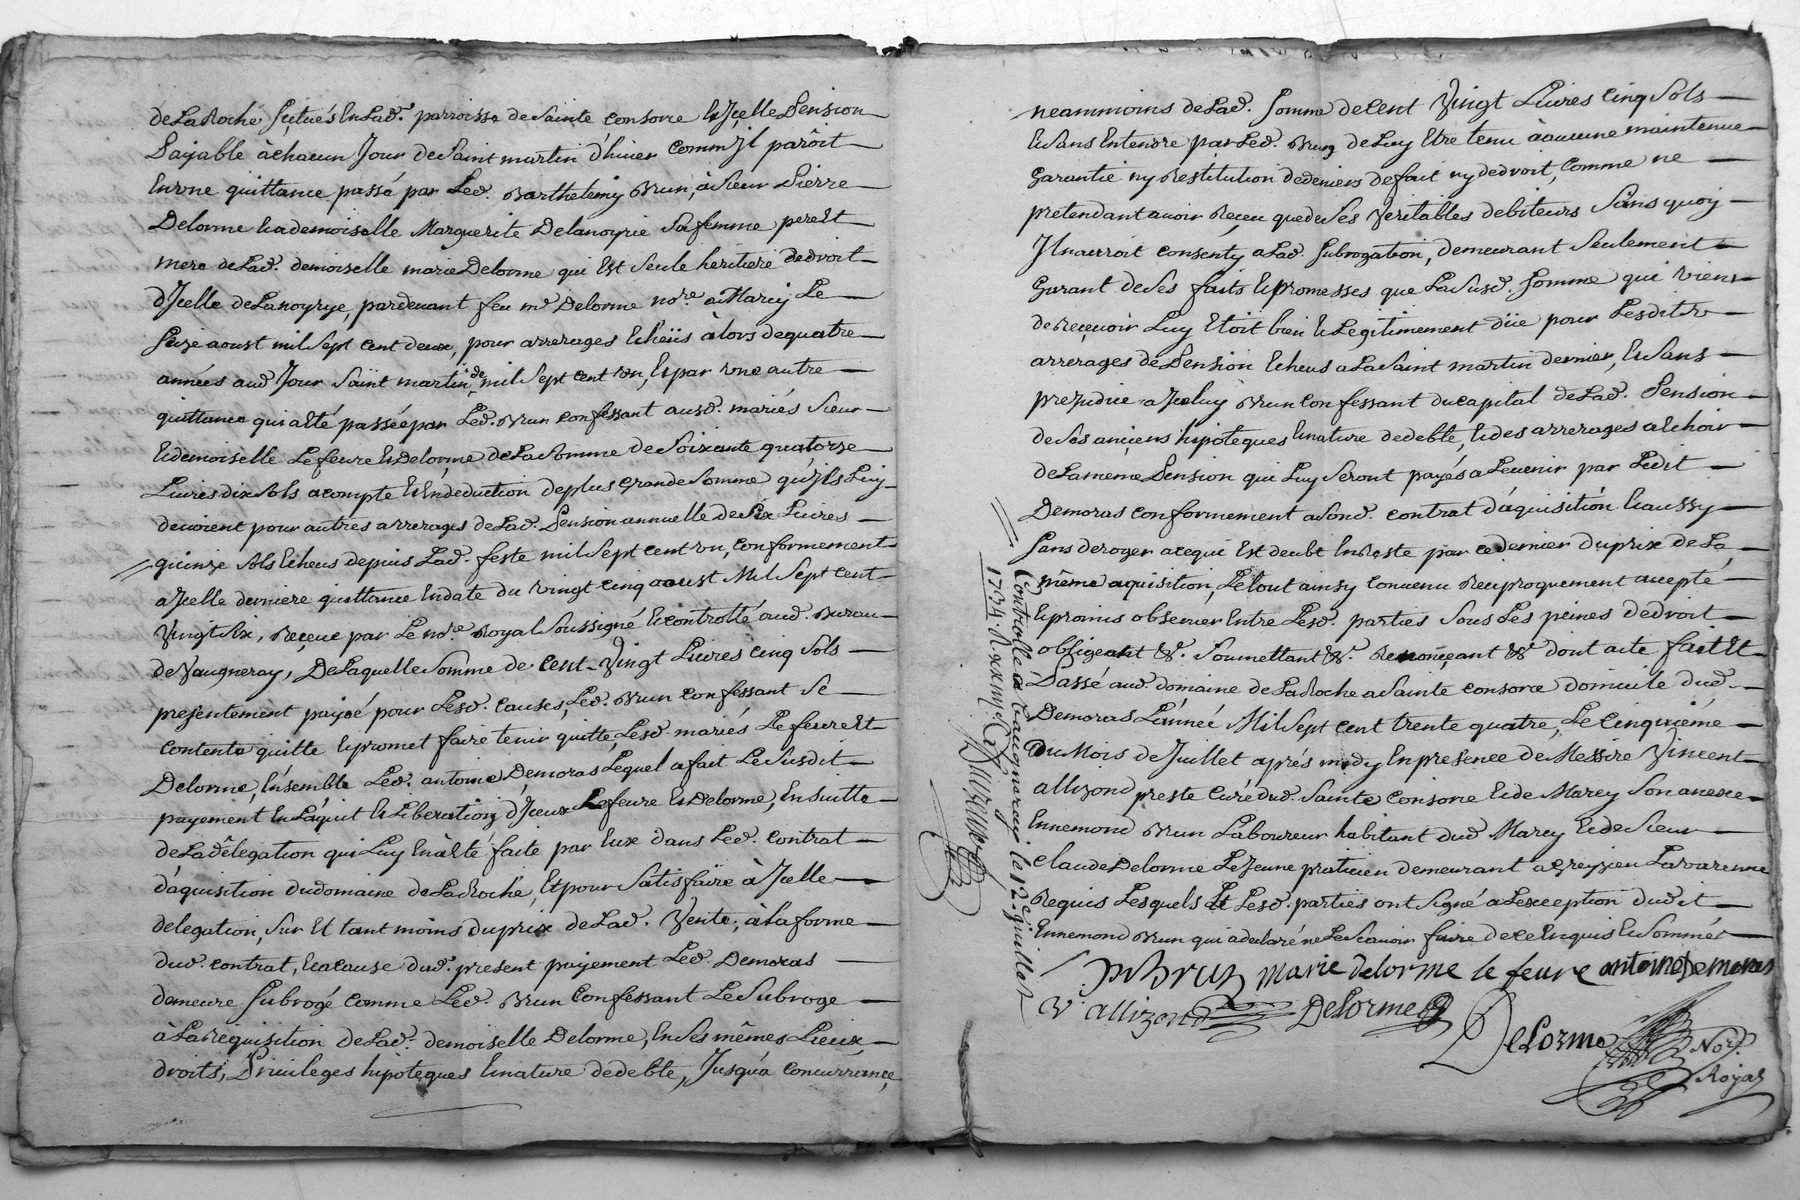 de La Roche scitués En Lad.e parroisse de Sainte Consorce Et Jcelle Pension
Payable à chacun Jour de Saint martin d'hiver comm'jl parôit
En vne quittance passé par Led. Barthelemy Brun, à Sieur Pierre
Delorme Et ademoiselle Marguerite Delanoyrie Sa femme pere Et
mere de Lad. demoiselle marie Delorme qui Est Seule heritiere de droit
d'Jcelle de Lanoyrye, pardevant feu m.e Delorme no.re a Marcy Le
Seize aoust mil Sept Cent deux, pour arrerages Echeüs à Lors de quatre
années aud Jour Saint martin de mil Sept cent un, Et par vne autre
quittance qui a Eté passée par Led. Brun confessant ausd. mariés Sieur
Et demoiselle Lefeure Et Delorme de La Somme de Soixante quatorze
Liures dix Sols acompte Et En deduction de plus Grande Somme qu'jls Luy
deuoient pour autres arrerages de Lad. Pension annuelle de Six Liures
quinze Sols Echeus depuis Lad. feste mil Sept cent un, conformement
a Jcelle derniere quittance En date du vingt cinq aoust Mil Sept cent
Vingt Six, Reçeue par Le no.re Royal Soussigné Et controllé aud. Bureau
de Vaugneray, De Laquelle Somme de cent Vingt Liures cinq Sols
presentement payée pour Lesd. Causes, Led. Brun confessant Se
Contente quitte Et promet faire tenir quitte, Lesd. mariés Lefeure Et
Delorme, Ensemble Led. antoine Demoras Lequel a fait Le Susdit
payement En L'aquit Et Liberation d'Jceux Lefeure Et Delorme, En suitte
de La délegation qui Luy En a Eté faite par Eux dans Led. contrat
d'aquisition du domaine de La Roche, Et pour Satisfaire à Jcelle
delegation, Sur Et tant moins du prix de Lad. Vente, à la forme
dud. contrat, Et a cause dud. present payement Led. Demoras
demeure Subrogé comme Led. Brun Confessant Le Subroge
à La Requisition de Lad. demoiselle Delorme, En Ses mêmes Lieux,
droits, Priuileges hipoteques Et nature de debte, Jusqu'a concurrence,
neammoins de Lad. Somme de Cent Vingt Liures cinq Sols
Et Sans Entendre par Led. Brun de Luy Etre tenu à aucune maintenue
Garantie ny Restitution de deniers de fait ny de droit, comme ne
pretendant auoir Reçeu que de Ses Veritables debiteurs Sans quoy
Jl n'auroit consenty a Lad. Subrogation, demeurant Seulement
Garant de Ses faits Et promesses que La Susd. Somme qui vient
de Reçeuoir Luy Etoit bien Et Legitimement düe pour Lesdits
arrerages de Pension Echeus a La Saint martin dernier, Et Sans
prejudice a Jceluy Brun Confessant du capital de Lad. Pension
de Ses anciens hipoteques Et nature de debte, Et des arrerages a Echoir
de La meme Pension qui Luy Seront payés a L'auenir par Ledit
Demoras conformement a Sond. contrat d'aquisition Et aussy
Sans deroger a ce qui Est deubt En Reste par ce dernier du prix de La
même aquisition, Le tout ainsy conuenu Reciproquement accepté
Et promis obseruer Entre Lesd. parties Sous Les peines de droit
obligeant &.a Soumettant &.a Renonçant &.a dont acte fait Et
Passé aud. domaine de La Roche a Sainte Consorce domicile dud.
Demoras L'année Mil Sept cent trente quatre, Le cinquiéme
du Mois de Juillet aprés midy En presence de Messire Vincent
allizond prestre Curé dud. Sainte Consorce Et de Marcy Son anexe
Ennemond Brun Laboureur habitant dud Marcy Et de Sieur
Claude Delorme Lejeune praticien demeurant a Greyzieu Lavarenne
Requis Lesquels Et Lesd. parties ont Signé a L'exception dudit
Ennemond Brun qui a declaré ne Le Scauoir faire de ce Enquis Et Sommé
Brun marie delorme le feure antoine Demoras
V allizond DeLorme
DeLorme Not.
Royal
Controllé a Vaugneray le 12.e juillet
1734.